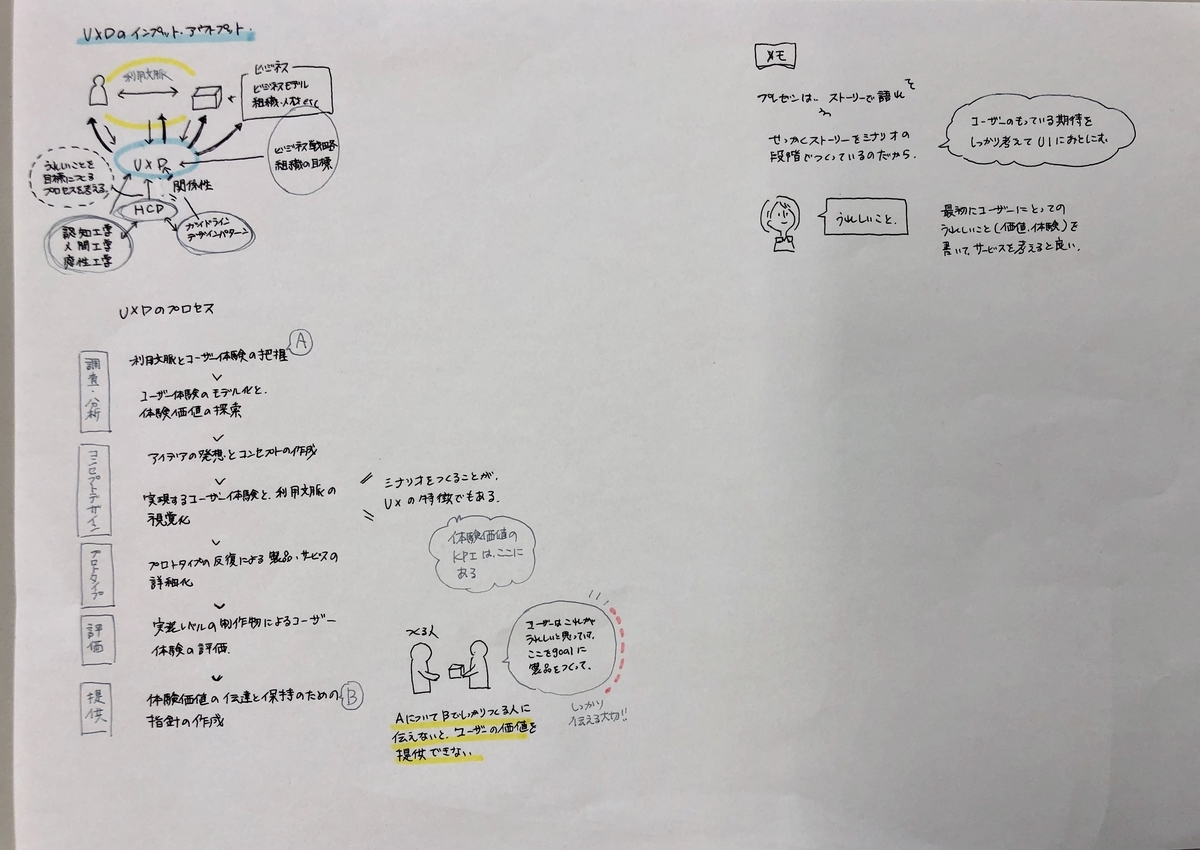 UXDのインプット・アウトプット.
利用文脈
ビジネス
ビジネスモデル
組織・人材 etc
ビジネス戦略
組織の目標
UXD
うれしいことを
目標につくる
プロセスを考える
関係性
HCD
認知工学
人間工学
感性工学
ガイドライン
デザインパターン
UXDのプロセス
調査・分析
利用文脈とユーザー体験の把握
A
ユーザー体験のモデル化と、
体験価値の探索
コンセプトデザイン
アイデアの発想とコンセプトの作成
実現するユーザー体験と、利用文脈の
視覚化
シナリオをつくることが、
UXの特徴でもある.
体験価値の
KPIは、ここに
ある
プロトタイプ
プロトタイプの反復による製品・サービスの
詳細化
評価
実装レベルの制作物によるユーザー
体験の評価.
提供
体験価値の伝達と保持のための
指針の作成
B
つくる人
ユーザーはこれが
うれしいと思っています。
ここをgoalに
製品をつくって、
しっかり
伝える大切!!
AについてBでしっかりつくる人に
伝えないと、ユーザーの価値を
提供できない.
メモ
プレゼンは、ストーリーで語れ
て
せっかくストーリーをシナリオの
段階でつくっているのだから.
ユーザーのもっている期待を
しっかり考えてUIにおとしこむ.
うれしいこと.
最初にユーザーにとっての
うれしいこと(価値、体験)を
書いて、サービスを考えると良い.